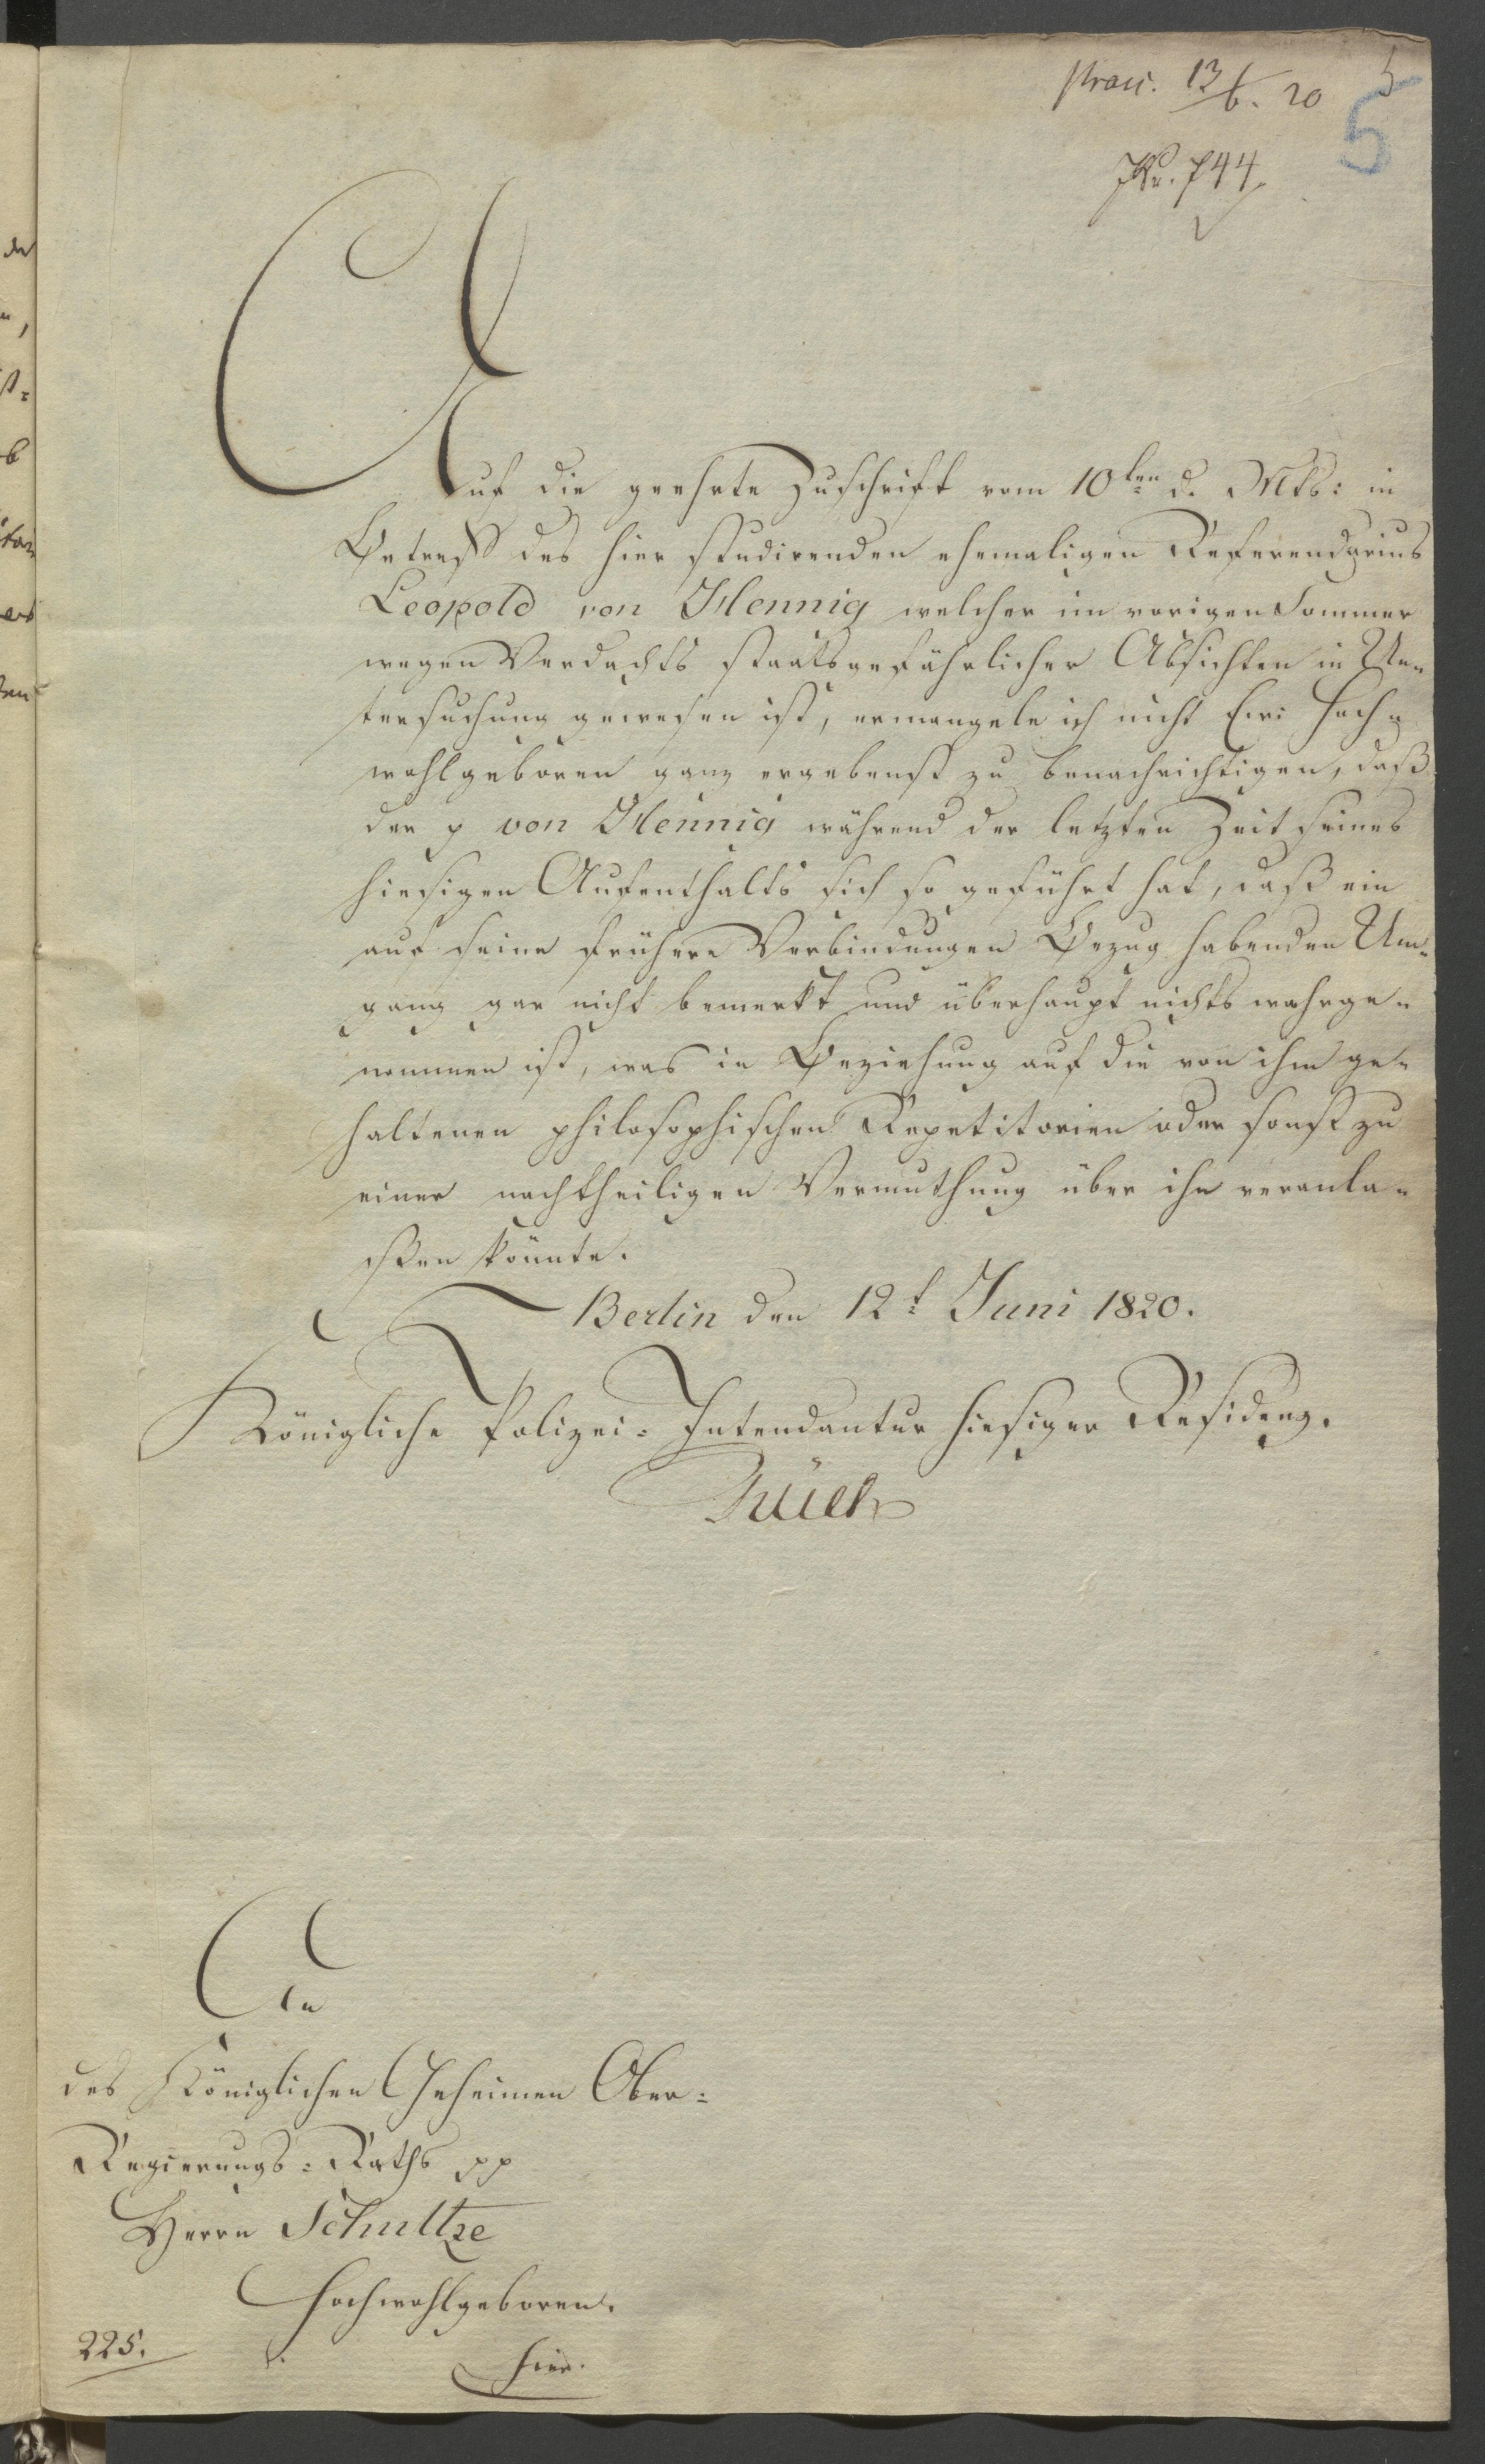 praes. 13/6. 20
5
5
No. 744.
Auf die geehrte Zuschrift vom 10ten d. Mts: in
Betreff des hier studirenden ehemaligen Referendarius
Leopold von Hennig welcher im vorigen Sommer
wegen Verdachts staatsgefährlicher Absichten in Un=
tersuchung gewesen ist, ermangele ich nicht Ew: Hoch=
wohlgeboren ganz ergebenst zu benachrichtigen, daß
der p von Hennig während der letzten Zeit seines
hiesigen Aufenthalts sich so geführt hat, daß ein
auf seine frühere Verbindungen Bezug habenden Um=
gang gar nicht bemerkt und überhaupt nichts wahrge=
nommen ist, was in Beziehung auf die von ihm ge=
haltenen philosophischen Repetitorien oder sonst zu
einer nachtheiligen Vermuthung über ihn veranla=
ßen könnte.
Berlin den 12t Juni 1820.
Königliche Polizei=Intendantur hiesiger Residenz.
An
des Königlichen Geheimen Ober=
Regierungs=Raths pp
Herrn Schultze
Hochwohlgeboren.
225.
hier.